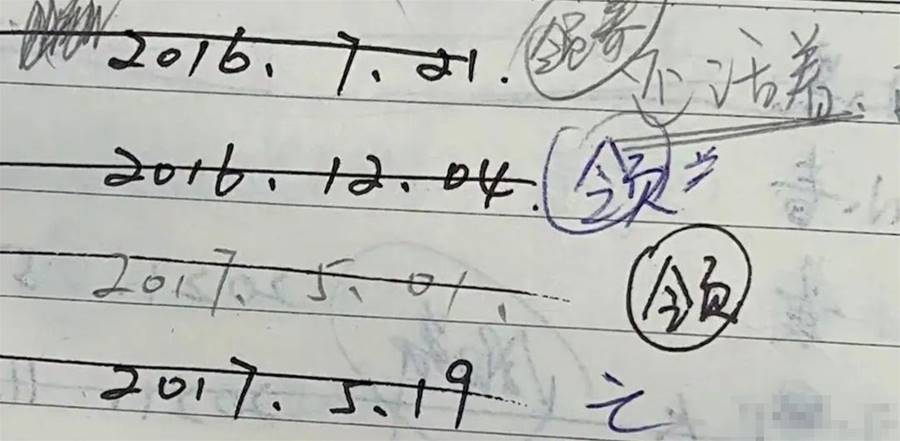 2016.7.21. 领 不 活着.
2016.12.04. 领
2017.5.01. 领
2017.5.19 亡